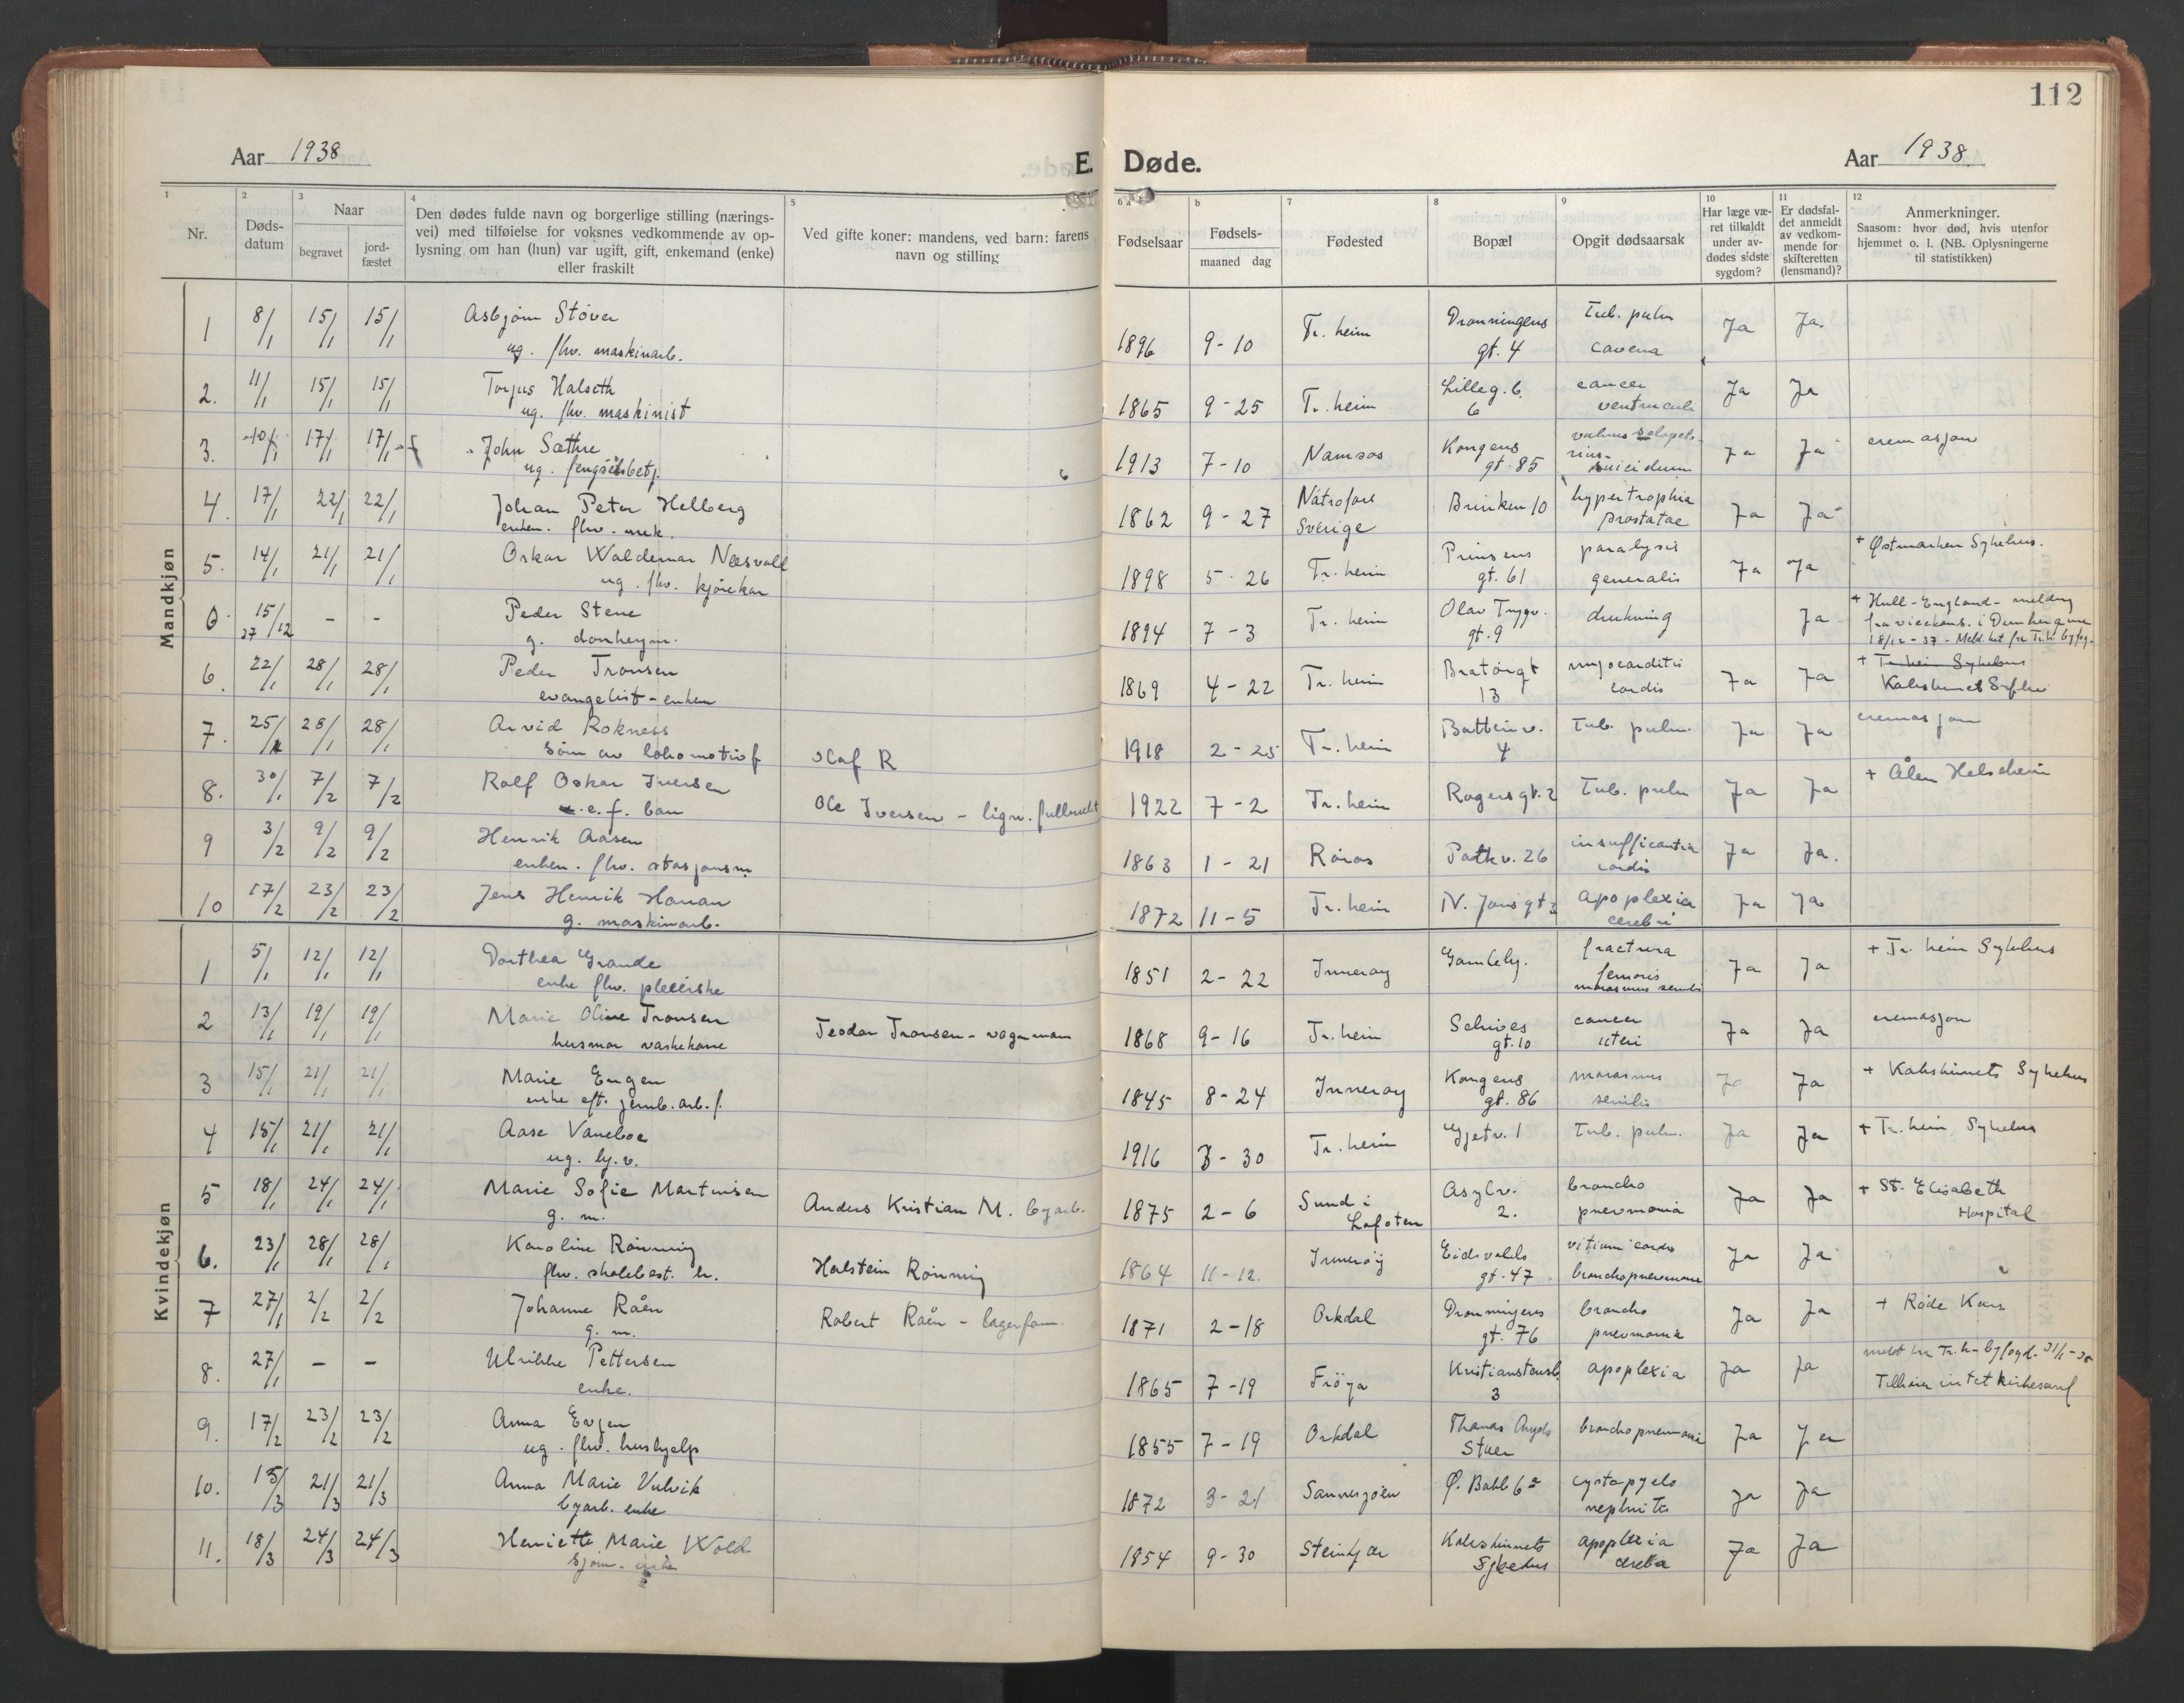 112
Aar 1938
E. Døde.
Aar 1938.
1 2 3 4 5 6 a b 7 8 9 10 11 12
Nr.
Døds-
datum
Naar
begravet
jord-
fæstet
Den dødes fulde navn og borgerlige stilling (nærings-
vei) med tilføielse for voksnes vedkommende av op-
lysning om han (hun) var ugift, gift, enkemand (enke)
eller fraskilt
Ved gifte koner: mandens, ved barn: farens
navn og stilling
Fødselsaar
Fødsels-
maaned dag
Fødested
Bopæl
Opgit dødsaarsak
Har læge væ-
ret tilkaldt
under av-
dødes sidste
sygdom?
Er dødsfal-
det anmeldt
av vedkom-
mende for
skifteretten
(lensmand)?
Anmerkninger.
Saasom: hvor død, hvis utenfor
hjemmet o. l. (NB. Oplysningerne
til statistikken)
Mandkjøn
1 8/1 15/1 15/1 Asbjørn Støver 1896 9-10 Tr. heim Dronningens Tub. pulm Ja Ja.
ug. fhv. maskinarb. gt. 4 caverna
2. 11/1 15/1 15/1 Torjus Halseth 1865 9-25 Tr. heim Lilleg. b. cancer Ja Ja
ug. fhv. maskinist 6 ventriculi
3. 10/1 17/1 17/1 John Sæthre 1913 7-10 Namsos Kongens vulnus sclopeto- Ja Ja cremasjon
ug. fengselsbetj. gt. 85 rius suicidium
4. 17/1 22/1 22/1 Johan Peter Helberg 1862 9-27 Nätrafore Brinken 10 hypertrophia Ja Ja
enkem. fhv. mek. Sverige prostatae
5. 14/1 21/1 21/1 Oskar Waldemar Næsvold 1898 5-26 Tr. heim Prinsens paralysis Ja Ja + Østmarken Sykehus.
ug. fhv. kjørekar gt. 61 generalis
0 15/12 37 - - Peder Stene 1894 7-3 Tr. heim Olav Trygv. drukning Ja + Hull-England- melding
g. donkeym. gt. 9 fra vicekons. i
18/12-37 - Meld. hit fra Tr.h. byfog.
6. 22/1 28/1 28/1 Peder Tronsen 1869 4-22 Tr. heim Bratørgt myocarditis Ja Ja + Tr.heim Sykehus
evangelist - enkem 13 cordis Kalvskinnet
7. 25/1 28/1 28/1 Arvid Rokness 1918 2-25 Tr. heim Batteriv. Tub. pulm. Ja Ja cremasjon
søn av lokomotivf Olaf R 4
8. 30/1 7/2 7/2 Rolf Oskar Iversen Ole Iversen - lign. 1922 7-2 Tr. heim Rogersgt. 2 Tub. pulm Ja Ja + Ålen Helseheim
u.e.f. barn
9 3/2 9/2 9/2 Henrik Aasen 1863 1-21 Røros Parkv. 26 insufficientia Ja Ja.
enkem. fhv. stasjonsm. cordis
10 17/2 23/2 23/2 Jens Henrik Hanan 1872 11-5 Tr. heim N. Jonsgt 3 apoplexia Ja Ja
g. maskinarb. cerebri
Kvindekjøn
1 5/1 12/1 12/1 Dorthea Grande 1851 2-22 Inderøy Gamleby. fractura Ja Ja + Tr. heim Sykehus
enke fhv. pleierske femoris
marasmus senilis
2 13/1 19/1 19/1 Marie Oline Tronsen Teodor Tronsen - vognmann 1868 9-16 Tr. heim Schives cancer Ja Ja cremasjon
husmor vaskekone gt. 10 uteri
3 15/1 21/1 21/1 Marie Engen 1845 8-24 Inderøy Kongens marasmus Ja Ja + Kalvskinnets Sykehus
enke eft. jernb. arb. f. gt. 86 senilis
4 15/1 21/1 21/1 Aase Vaneboe 1916 3-30 Tr. heim Gjetv. 1 Tub. pulm. Ja Ja + Tr. heim Sykehus
ug. hj. v.
5 18/1 24/1 24/1 Marie Sofie Martinsen Anders Kristian M. byarb. 1875 2-6 Sund i Asylv. broncho Ja Ja + St. Elisabeth
g. m. Lofoten 2. pneumonia Hospital
6. 23/1 28/1 28/1 Karoline Rønning Halstein Rønning 1864 11-12. Inderøy Eidsvolds vitium cordis Ja Ja
fhv. skolebest. h. gt. 47 bronchopneumoni
7 27/1 2/2 2/2 Johanne Råen Robert Råen - lagerform. 1871 2-18 Orkdal Dronningens broncho Ja Ja + Røde Kors
g. m. gt. 76 pneumonia
8. 27/1 - - Ulrikke Pettersen 1865 7-19 Frøya Kristianstensb. apoplexia Ja Ja meldt fra Tr.h-byfogd. 31/1-38
enke. 3 Tilhører intet kirkesamf
9. 17/2 23/2 23/2 Anna Evjen 1855 7-19 Orkdal Thomas Angels bronchopneumonia Ja Ja
ug. fhv. hushjelp Stuer
10. 15/3 21/3 21/3 Anna Marie Vulvik 1872 3-21 Sannesjøen Ø. Bakl 6a cystopyelo Ja Ja
byarb. enke nephritis
11. 18/3 24/3 24/3 Henriette Marie Wold 1854 9-30 Steinkjær Kalvskinnets apoplexia Ja Ja
sjøm. enke Sykehus cerebri